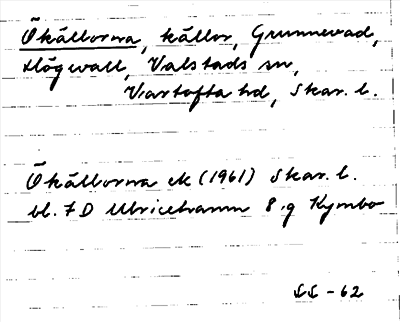 Ökällorna, källor, Grunnevad,
Högvall, Valstads sn,
Vartofta hd, Skar. l.
Ökällorna ek (1961) Skar. l.
bl. 7 D Ulricehamn 8.g Kymbo
SS-62